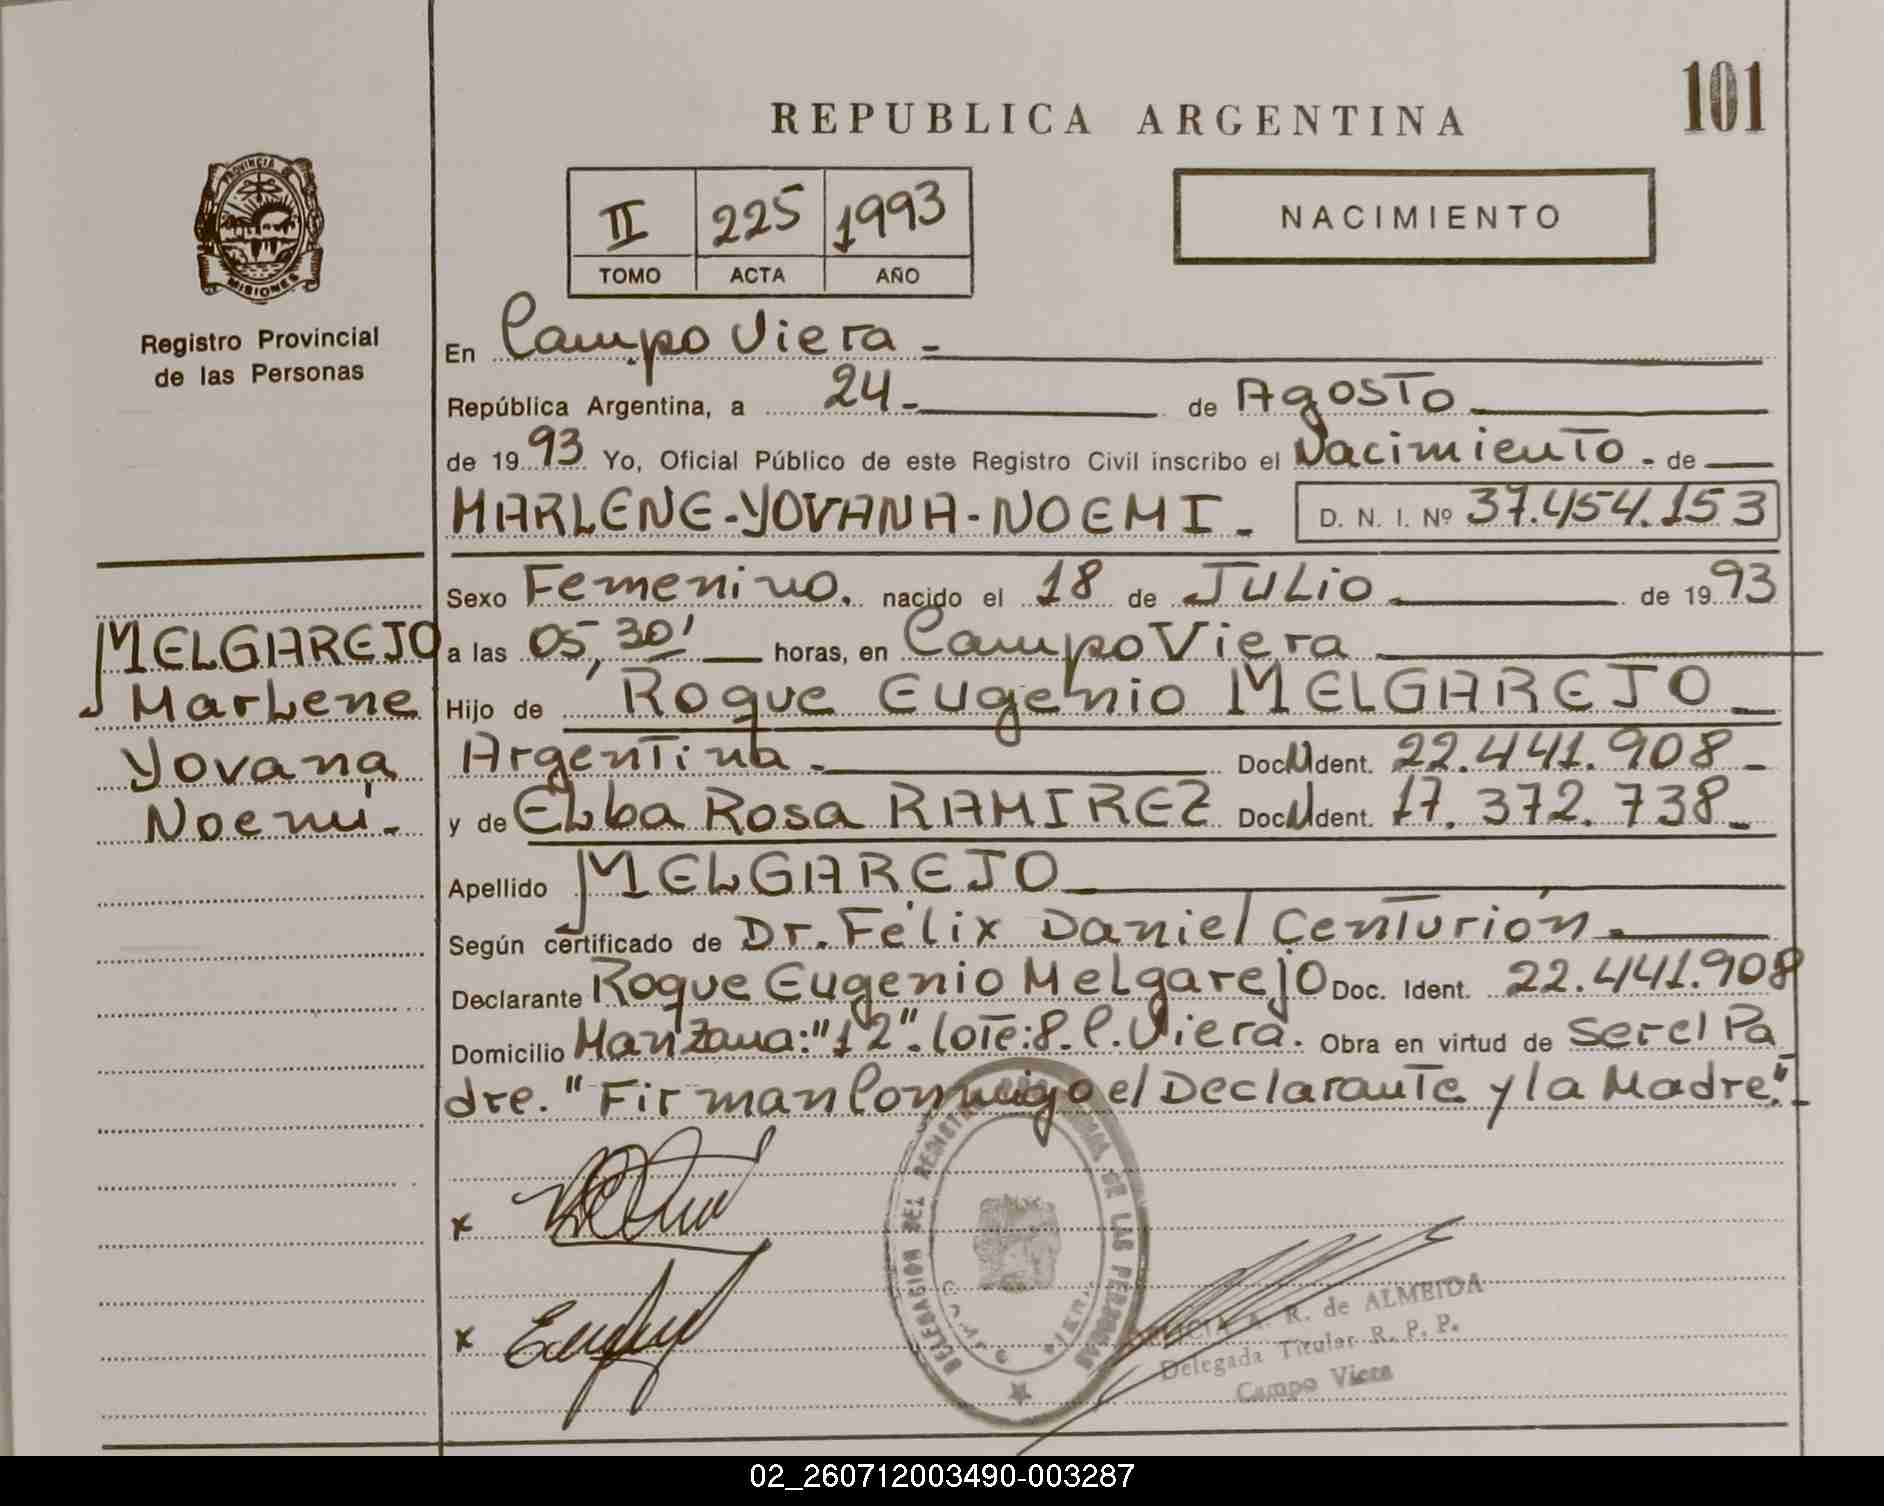 101
REPUBLICA ARGENTINA
PROVINCIA DE
MISIONES
Registro Provincial
de las Personas
II 225 1993
TOMO ACTA AÑO
NACIMIENTO
En Campo Viera -
República Argentina, a 24 - de Agosto
de 1993 Yo, Oficial Público de este Registro Civil inscribo el Nacimiento - de
MARLENE-YOVANA-NOEMI - D. N. I. Nº 37.454.153
Sexo Femenino. nacido el 18 de JULio de 1993
MELGAREJO
Marlene
Yovana
Noemí.-
a las 05,30' horas, en Campo Viera
Hijo de Roque Eugenio MELGAREJO
Argentina - Doc. Ident. 22.441.908 -
y de Elba Rosa RAMIREZ Doc. Ident. 17.372.738 -
Apellido MELGAREJO
Según certificado de Dr. Félix Daniel Centurión.
Declarante Roque Eugenio Melgarejo Doc. Ident. 22.441.908
Domicilio Manzana:"12".Lote:8.C.Viera. Obra en virtud de ser el Pa
dre. "Firman Conmigo el Declarante y la Madre".-
x
x
DELEGACION DEL REGISTRO DE LAS PERSONAS
A. R. de ALMEIDA
Delegada Titular R. P. P.
Campo Viera
02_260712003490-003287